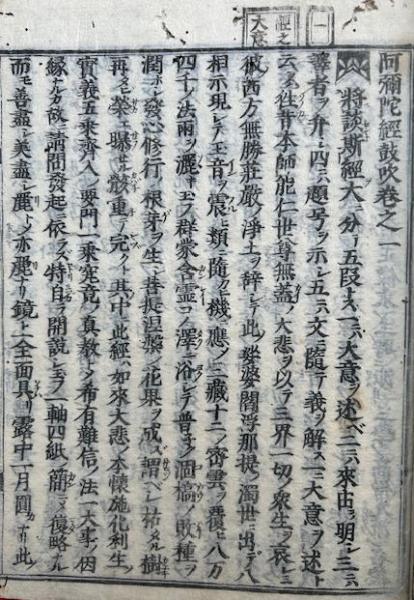 一
經之
大意
阿彌陀經鼓吹卷之一
將談斯經大ニ分テ五段トス一ニハ大意ヲ述ベ二ニハ來由ヲ明シ三ニハ
ヲ弁シ四ニハ題号ヲ示シ五ニハ文ニ隨テ義ヲ解ス一ニ大意ヲ述ト
云ハ往昔本師能仁世尊無蓋ノ大悲ヲ以テ三界一切ノ衆生ヲ哀ミ
彼西方無勝莊嚴ノ淨土ヲ辞シテ此ノ娑婆閻浮那提ノ濁世ニ出テ八
相示現シテ玉音ヲ震ヒ類ニ隨ヒ機ニ應ノ三藏十二ノ密雲ヲ覆ヒ八万
四千ノ法雨ヲ灑キ玉フ群萠含靈コノ澤ニ浴シテ普ク子ノ涸槁ノ敗種ヲ
潤ホシ發心修行ノ根芽ヲ生シ菩提涅槃ノ花果ヲ成ス謂ベシ枯タル樹
再ヒ榮ヘ曝セル骸重テ完シト其中ニ此經ハ如來大悲ノ本懷施化利生ノ
實義五乘齊入ノ要門一乘究竟ノ眞教ナリ希有難信ノ法一大事ノ因
縁ナルカ故ニ請問發起ニ依ラス特リ自ラ開說シ玉フ一軸四紙簡ニメ復略ナル
而モ善盡シ美盡シ麗トメ亦麗ナリ鏡ト全面具リ露中一月圓ナリ此ノ